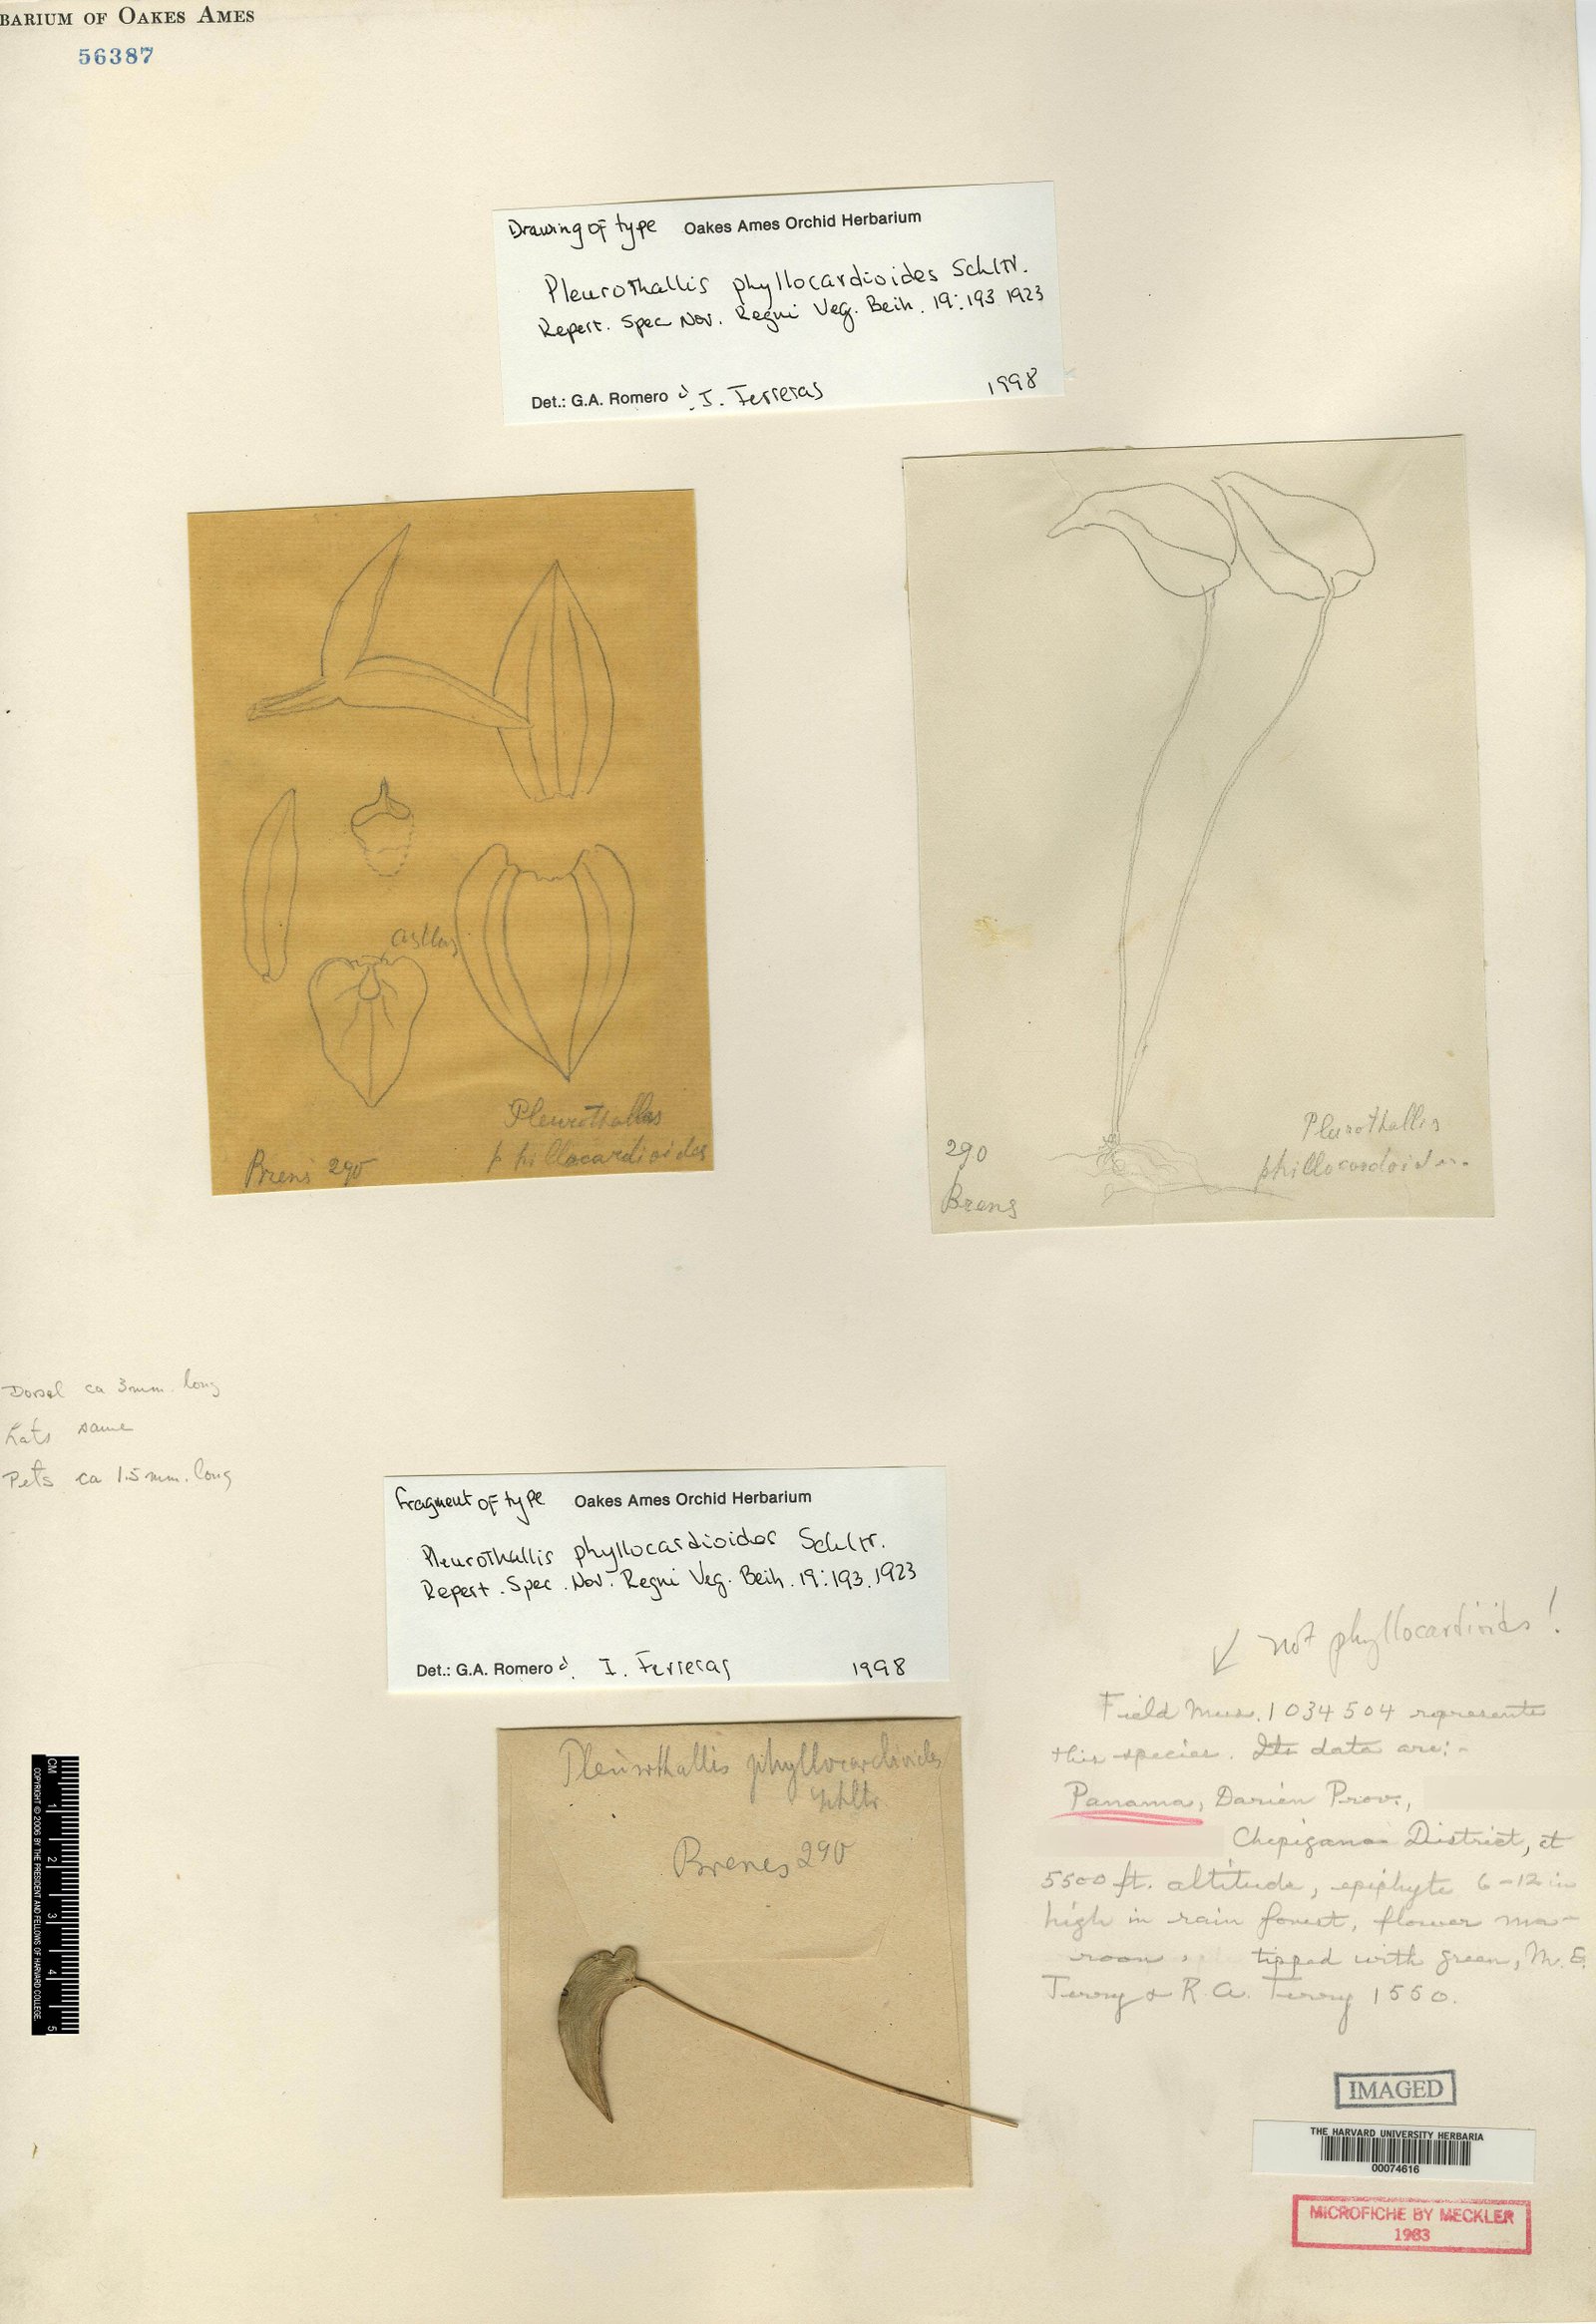 BARIUM OF OAKES AMES
56387
Drawing of type Oakes Ames Orchid Herbarium
Pleurothallis phyllocardioides Schltr.
Repert. Spec Nov. Regni Veg. Beih. 19:193 1923
Det.: G.A. Romero & I. Ferreras 1998
Pleurothallis
phillocardioides
Brenes 290
290
Brens
Pleurothallis
phillocardoides
Dorsal ca 3mm. long
Lats same
Pets ca 1.5mm. long
fragment of type Oakes Ames Orchid Herbarium
Pleurothallis phyllocardioides Schltr.
Repert. Spec. Nov. Regni Veg. Beih. 19:193. 1923
Det.: G.A. Romero & I. Ferreras 1998
Pleurothallis phyllocardioides
Schltr
Brenes 290
not phyllocardioides!
Field Mus. 1034504 represents
this species. Its data are:-
Panama, Darién Prov.,
Chepigana District, at
5500 ft. altitude, epiphyte 6-12 in
high in rain forest, flower ma-
roon, tipped with green, M. E.
Terry & R. A. Terry 1550.
CM 1 2 3 4 5
COPYRIGHT © 2006 BY THE PRESIDENT AND FELLOWS OF HARVARD COLLEGE.
IMAGED
THE HARVARD UNIVERSITY HERBARIA
00074616
MICROFICHE BY MECKLER
1983